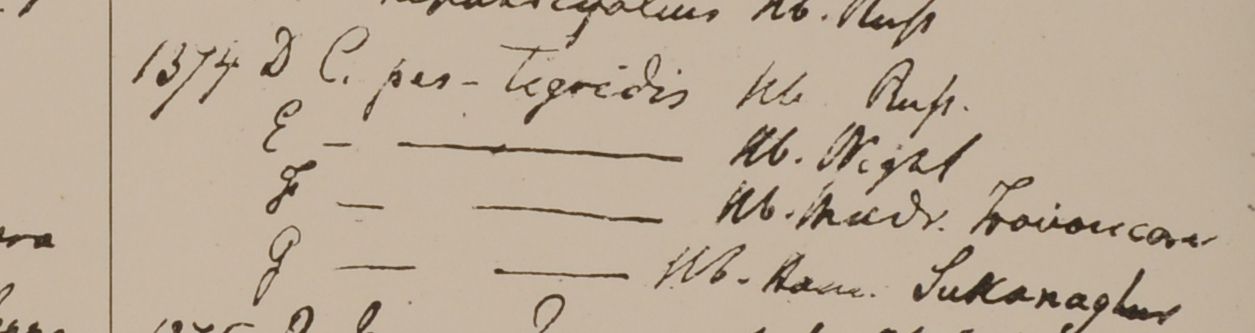 Hb. Russ
1374 D C. pes-tigridis Hb Russ.
E — — Hb. Wight
F — — Hb. Madr. Travancore
G — — Hb. Ham. Sukanaghur